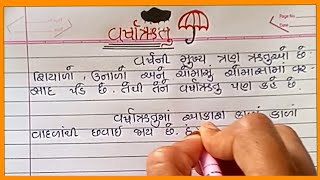 વર્ષાઋતુ
વર્ષની મુખ્ય ત્રણ ઋતુઓ છે:
શિયાળો, ઉનાળો અને ચોમાસુ ચોમાસામાં વર-
સાદ પડે છે. તેથી તેને વર્ષાઋતુ પણ કહે છે.
વર્ષાઋતુમાં આકાશ કાળાં કાળાં
વાદળાંથી છવાઈ જાય છે.